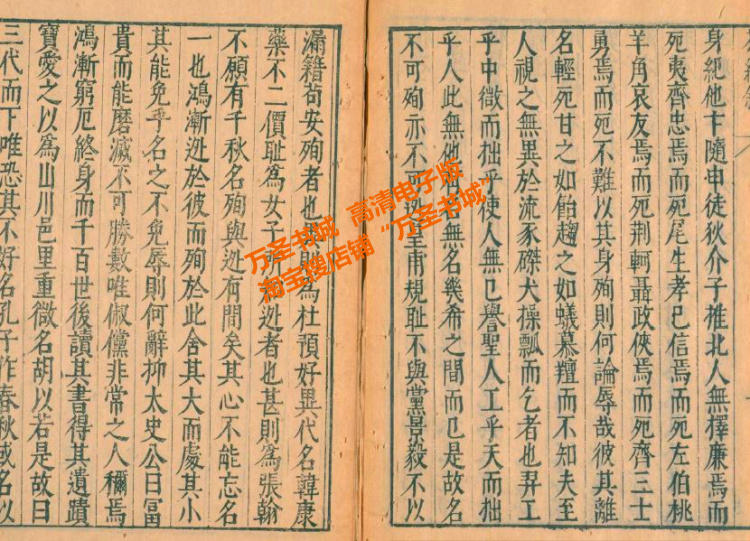 身絕他卞隨申徒狄介子推北人無擇廉焉而
死夷齊忠焉而死尾生孝已信焉而死左伯桃
羊角哀友焉而死荆軻聶政俠焉而死齊三士
勇焉而死不難以其身殉則何論辱哉彼其離
名輕死甘之如飴趨之如蟻慕羶而不知夫至
人視之無異於流豕磔犬操瓢而乞者也羿工
乎中微而拙乎使人無巳譽聖人工乎天而拙
乎人此無他有名無名幾希之間而巳是故名
不可殉亦不可逃皇甫規耻不與黨景毅不以
漏籍苟安殉者也甚則為杜預好異代名韓康
藥不二價耻為女子逃者也甚則為張翰
不願有千秋名殉與逃有間矣其心不能忘名
一也鴻漸逃於彼而殉於此舍其大而處其小
其能免乎名之不免辱則何辭抑太史公曰富
貴而能磨滅不可勝數唯俶儻非常之人稱焉
鴻漸窮厄終身而千百世後讀其書得其遺蹟
寶愛之以為山川邑里重微名胡以若是故曰
三代而下唯恐其不好名孔子作春秋或名以
万圣书城 高清电子版
淘宝搜店铺“万圣书城”